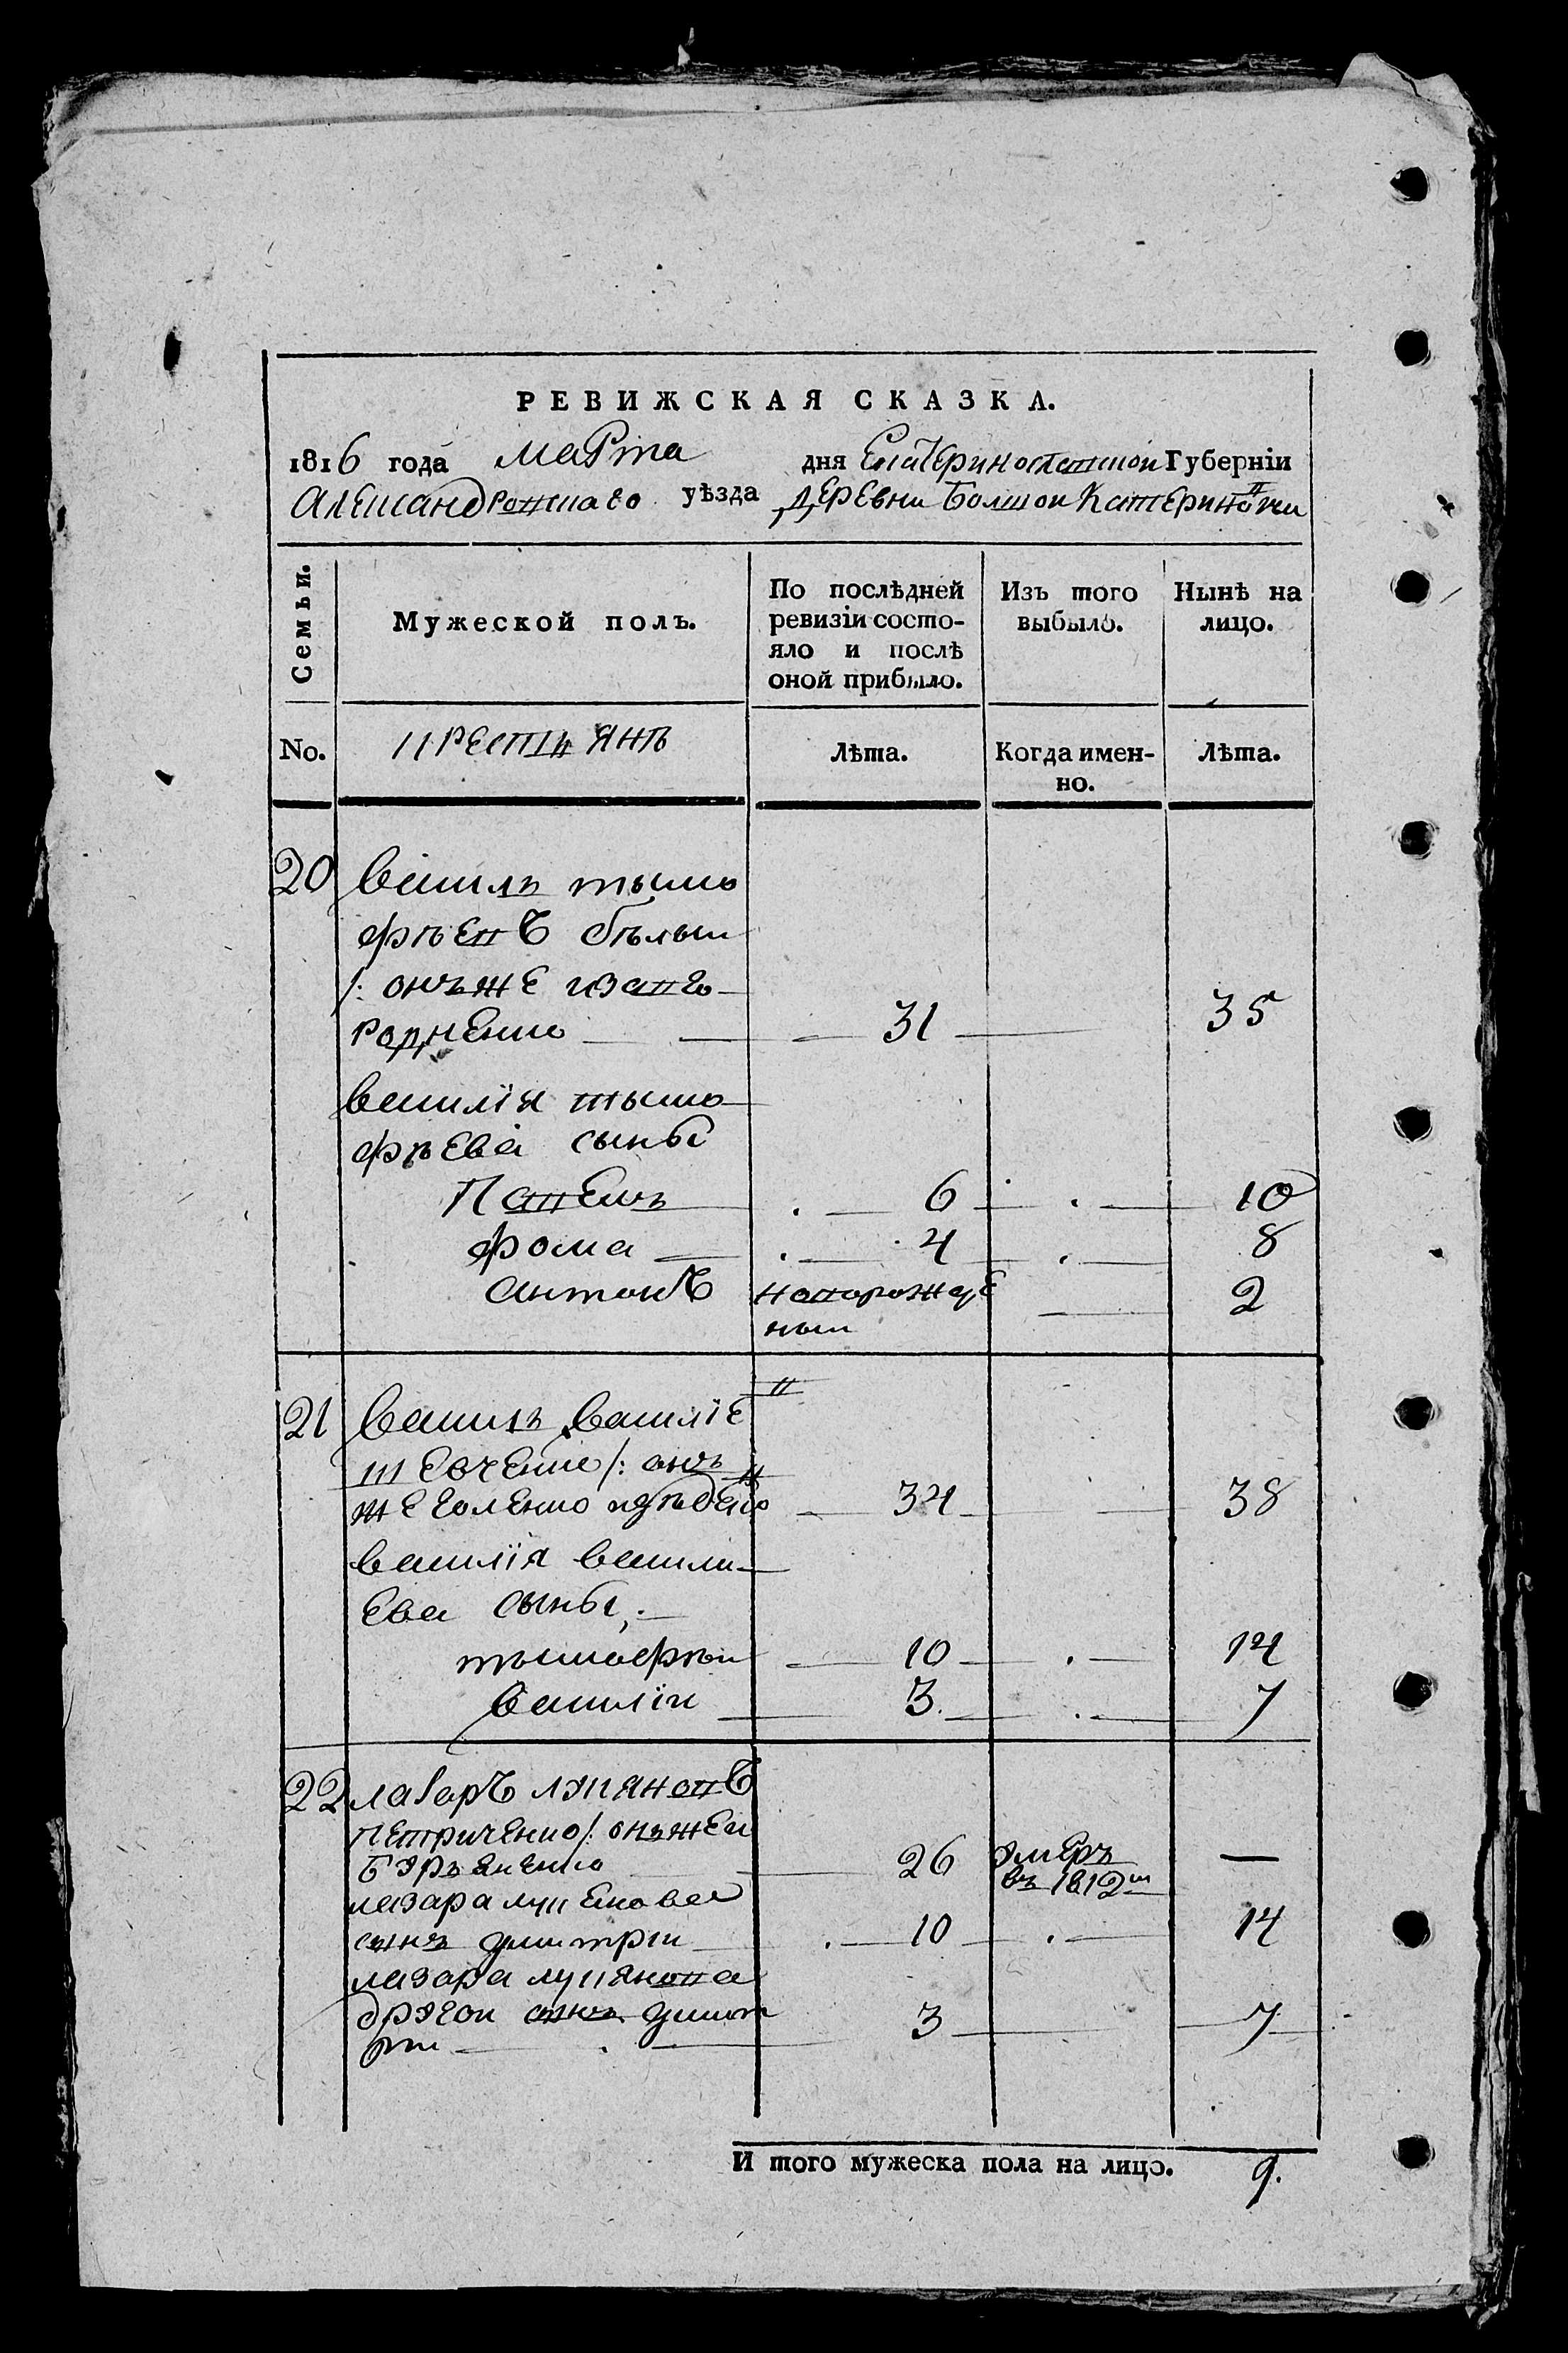 РЕВИЖСКАЯ СКАЗКА.
1816 года марта дня Екатеринославской Губерніи
Александровскаго уѣзда деревни Болшои Катериновки
Семьи.
Мужеской полъ.
По послѣдней ревизіи состояло и послѣ оной прибыло.
Изъ того выбыло.
Нынѣ на лицо.
No.
крестьянъ
Лѣта.
Когда именно.
Лѣта.
20 василь тымо
фѣевъ бѣлыи
/: онъже
31 35
василія тымо
фѣева сыны
Павелъ 6 10
фома 4 8
антонъ новорожде 2
ныи
21 василь василіев
шевченко /: онъ
же голенко 34 38
василія васили
ева сыны
тымофѣи 10 14
василіи 3 7
22 лазаръ лукяновъ
Петриченко /: онъжеи
26 умеръ —
въ 1812м
лазара лукянова
сынъ дмитріи 10 14
лазара лукянова
другои сынъ дмит
ріи 3 7
И того мужеска пола на лицо. 9.